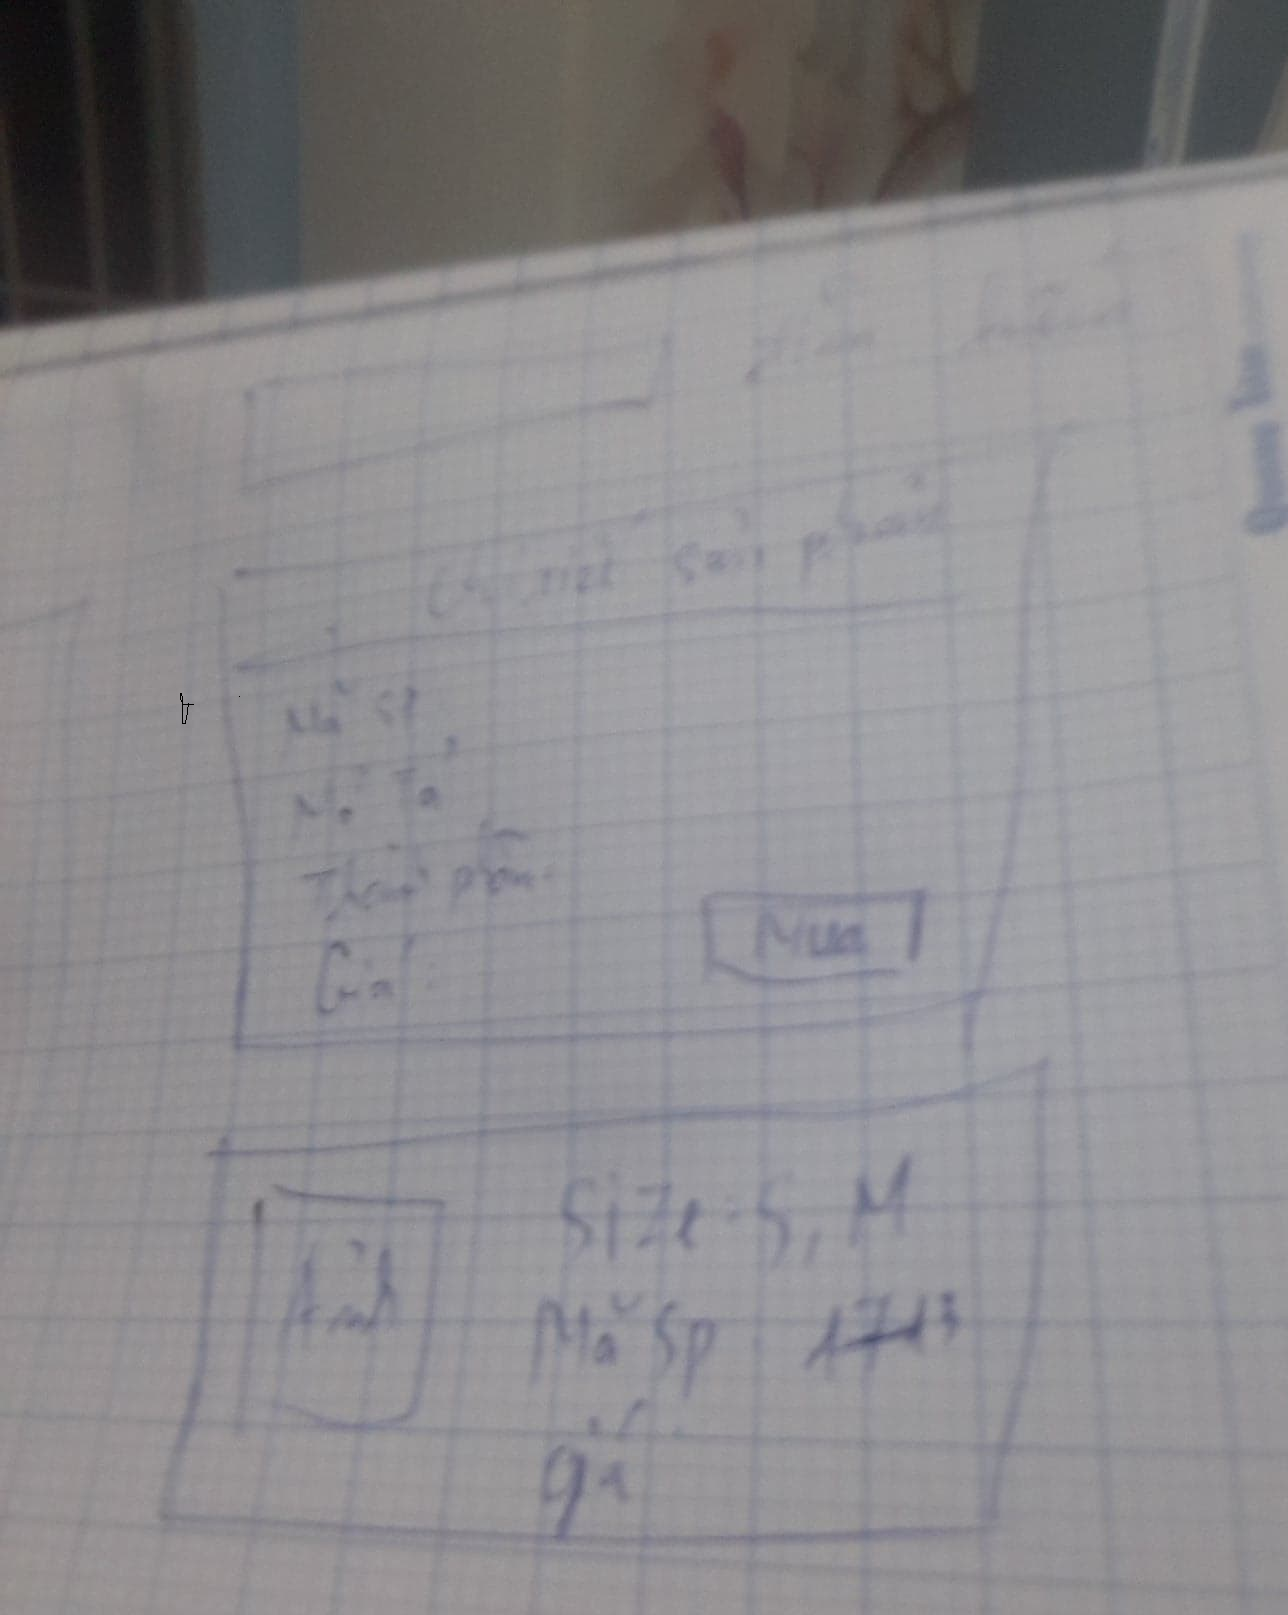 Tìm kiếm
Chi tiết sản phẩm
Mã SP
Mô Tả
Thành phần.
Giá:
Mua
Ảnh
Size: S, M
Mã Sp:
giá